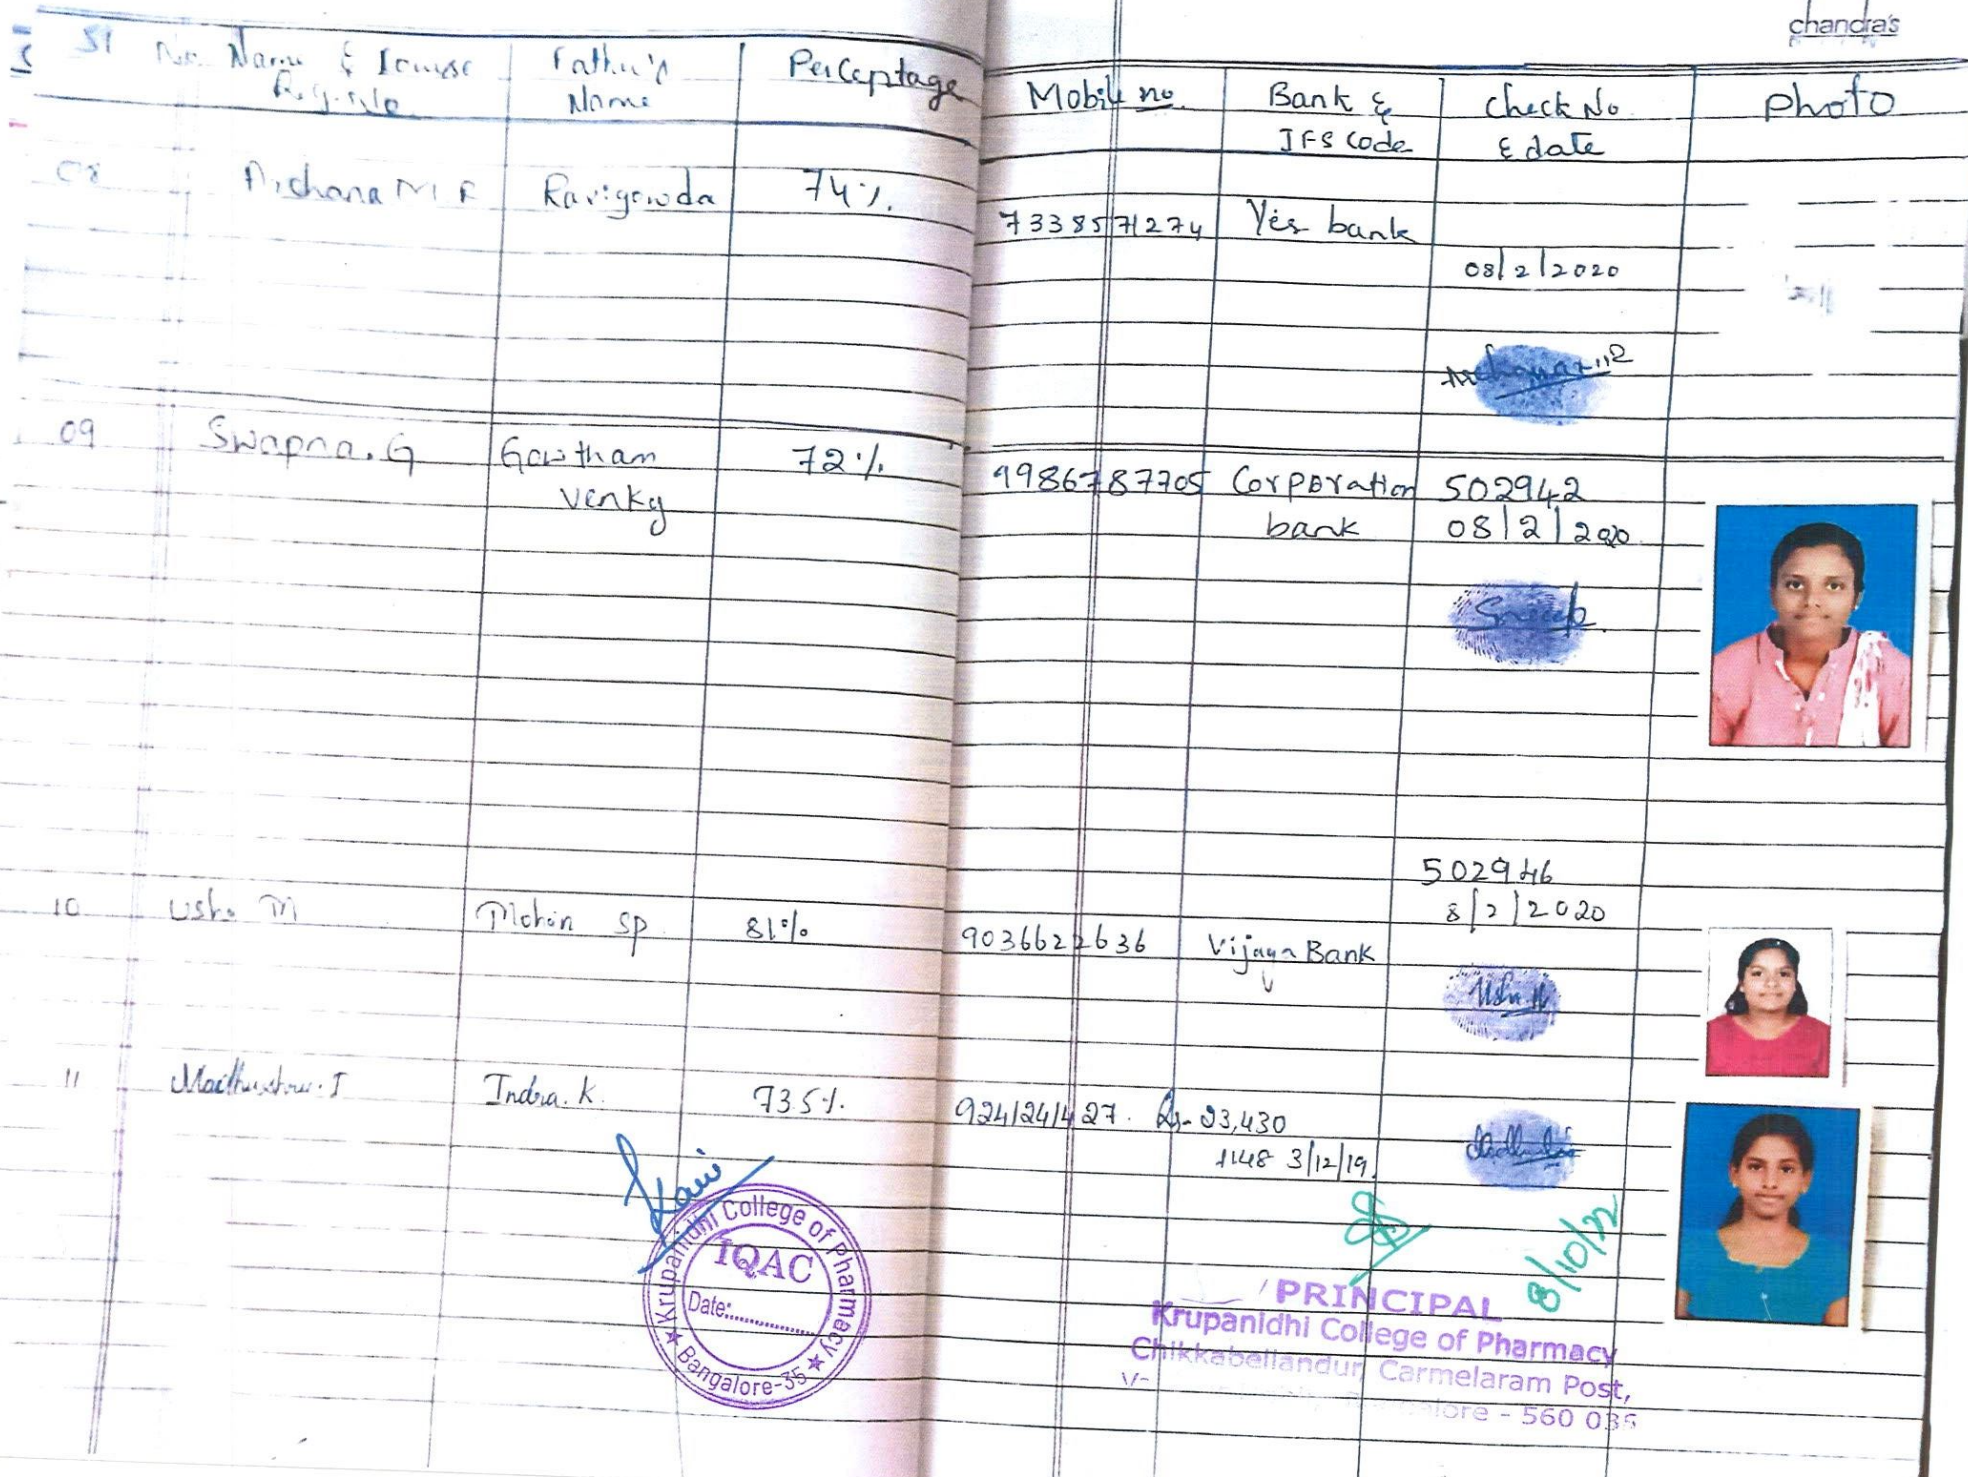 chandra's
Sl No. Name & Course Father's Perceptage Mobile no. Bank & check No. photo
Reg. Name IFS code & date
08 Archana M R Ravigowda 74%. 7338571274 Yes bank
08/2/2020
09 Swapna. G Gowtham 72%. 9986787705 Corporation 502942
venky bank 08/2/2020
502946
8/2/2020
10 Usha M Mohan SP 81% 9036622636 Vijaya Bank
Usha M
11 Madhushree. I Indra. K. 73.5%. 9241241427. Rs- 23,430
1148 3/12/19.
Krupanidhi College of Pharmacy
IQAC
Date:
Bangalore-35
8/10/22
PRINCIPAL
Krupanidhi College of Pharmacy
Chikkabellandur, Carmelaram Post,
- 560 035